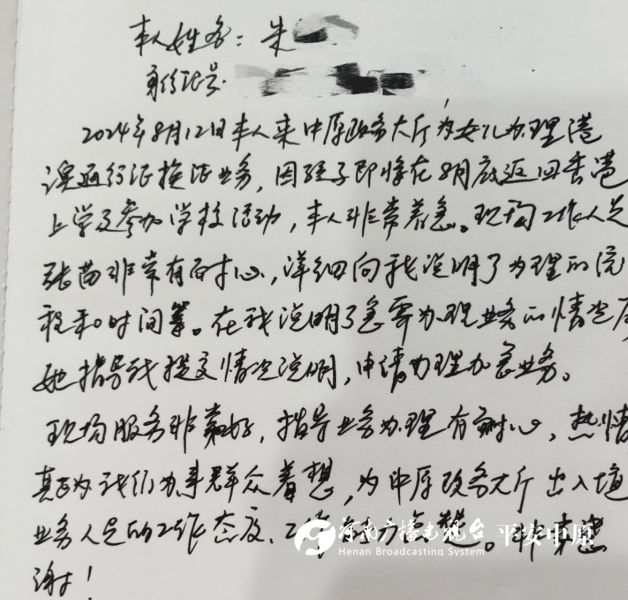 本人姓名：朱
身份证号
2024年8月12日本人来中原政务大厅为女儿办理港
澳通行证换证业务，因孩子即将在8月底返回香港
上学及参加学校活动，本人非常着急。现场工作人员
张苗非常有耐心，详细向我说明了办理的流
程和时间等。在我说明了急需办理业务的情况后
她指导我提交情况说明，申请办理加急业务。
现场服务非常好，指导业务办理有耐心，热情
真正为我们办事群众着想，为中原政务大厅出入境
业务人员的工作态度、工作 点赞。非常感
谢！
河南广播电视台 平安中原
Henan Broadcasting System